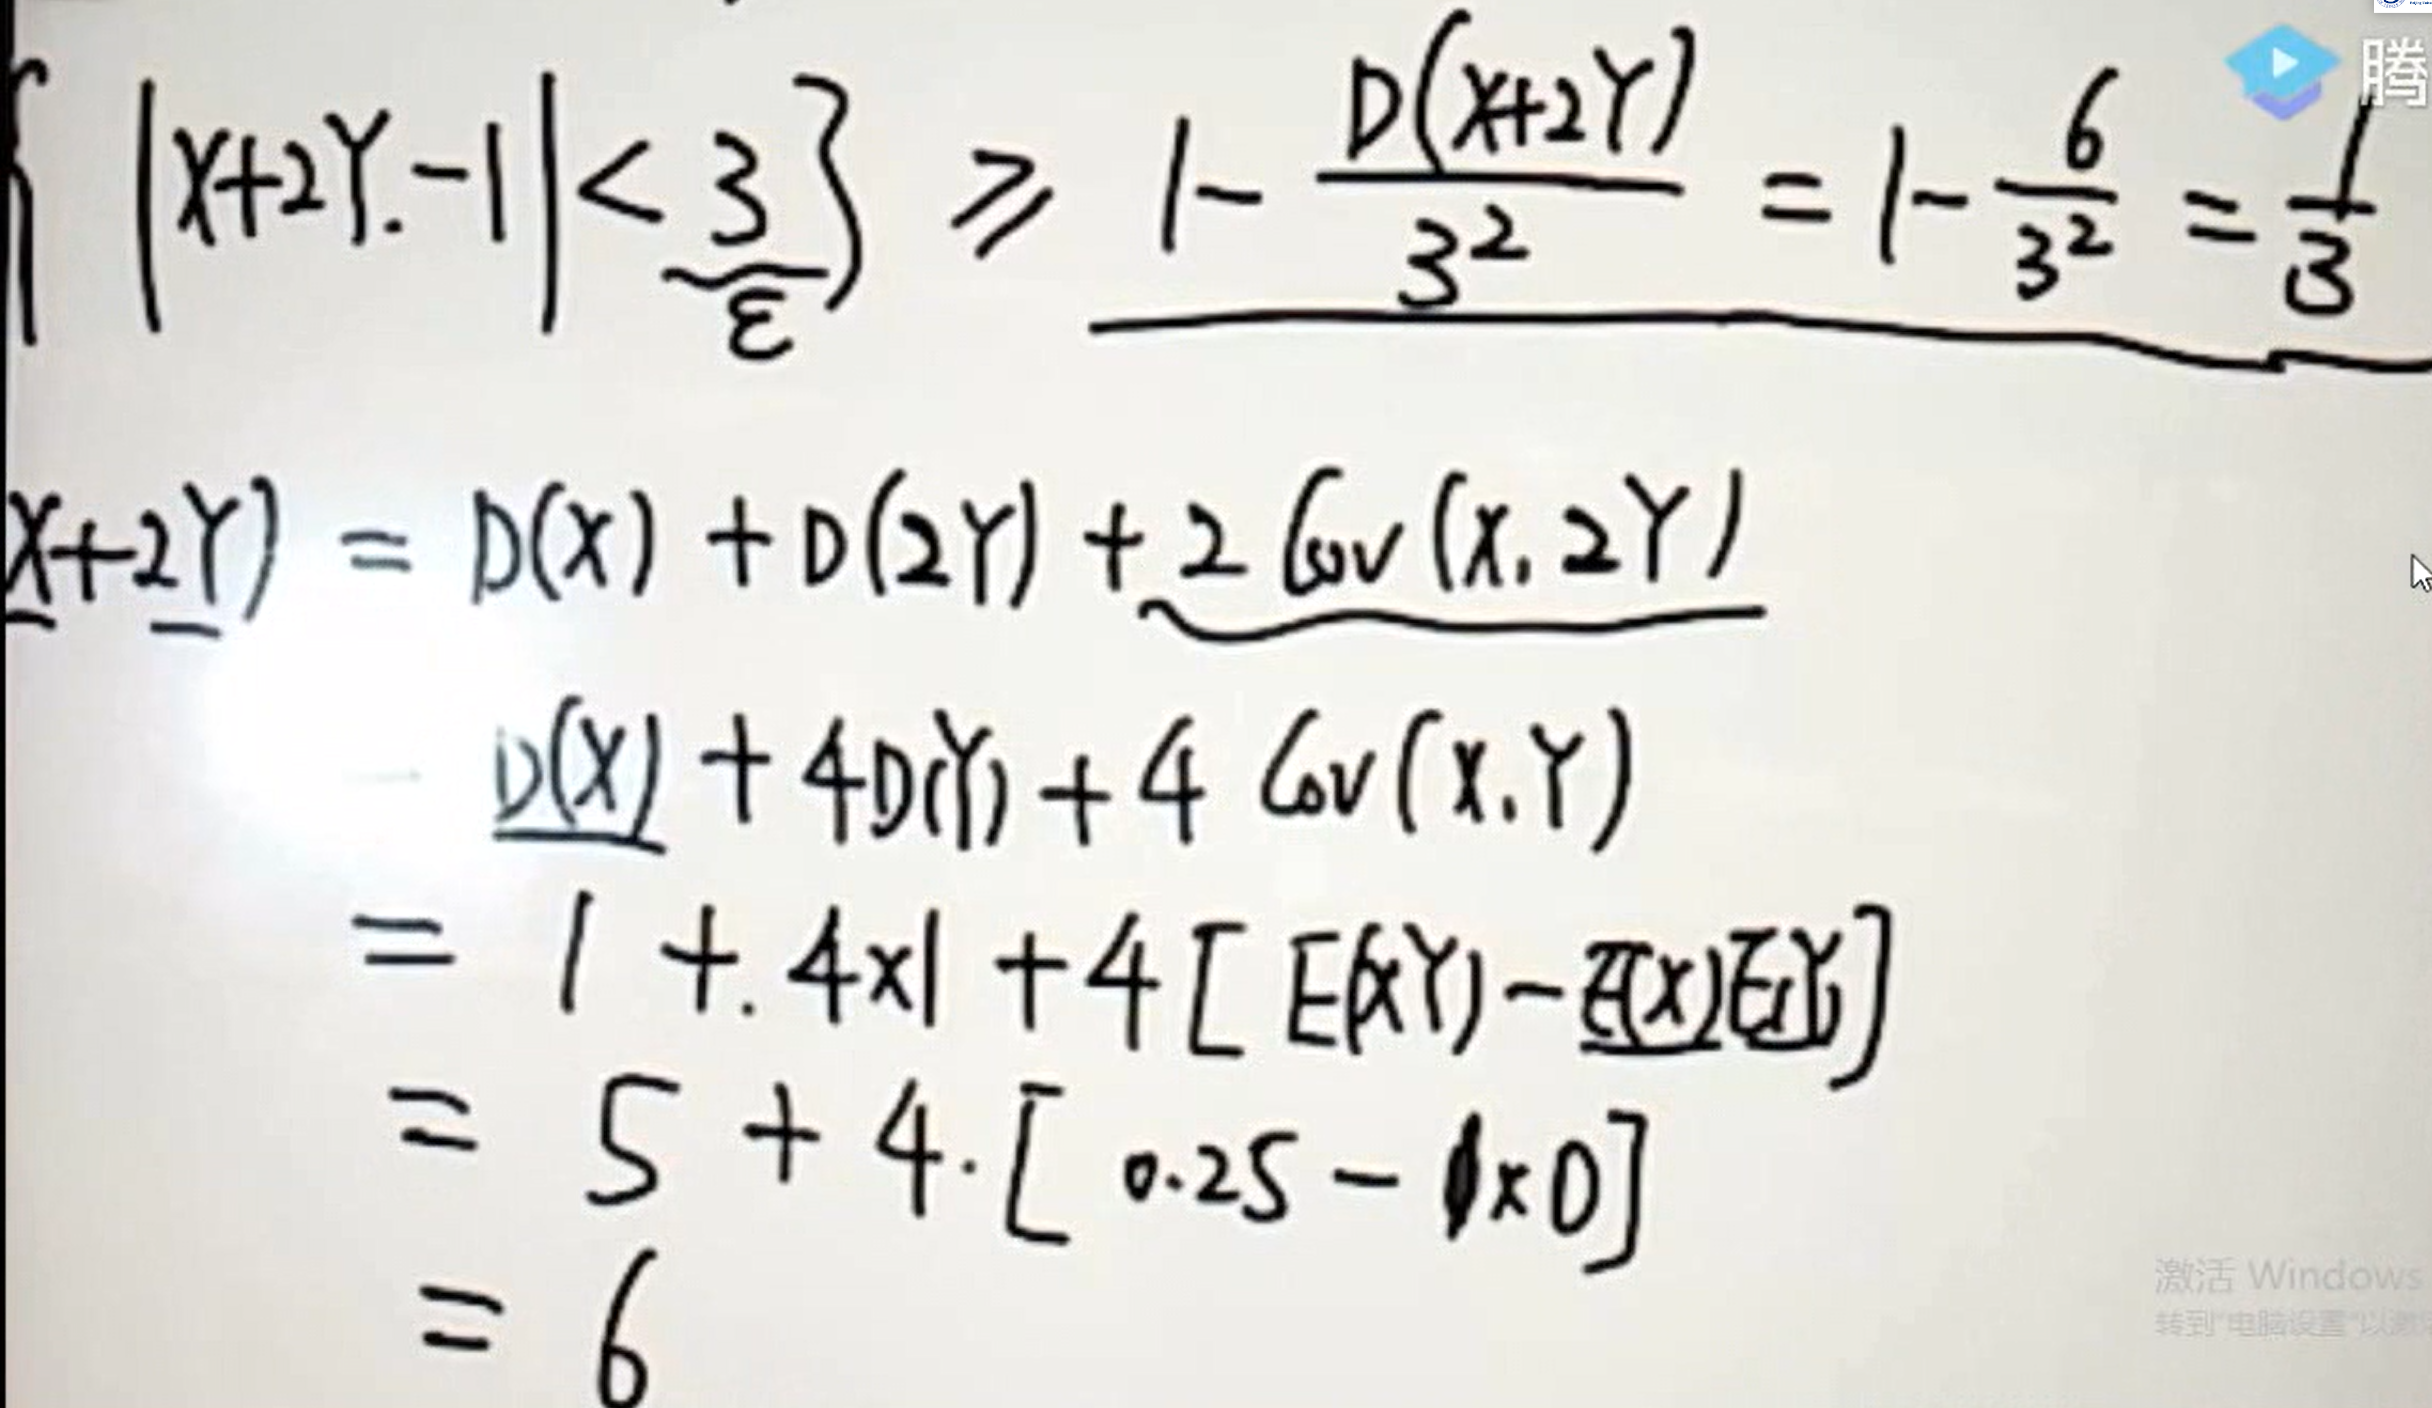 { |X+2Y.-1| < 3 } ≥ 1 - D(X+2Y)/3² = 1 - 6/3² = 1/3
ε
X+2Y) = D(X) + D(2Y) + 2 Cov(X, 2Y)
D(X) + 4D(Y) + 4 Cov(X,Y)
= 1 + 4×1 + 4 [ E(XY) - E(X)E(Y) ]
= 5 + 4·[ 0.25 - 1×0 ]
= 6
腾
激活 Windows
转到"电脑设置"以激